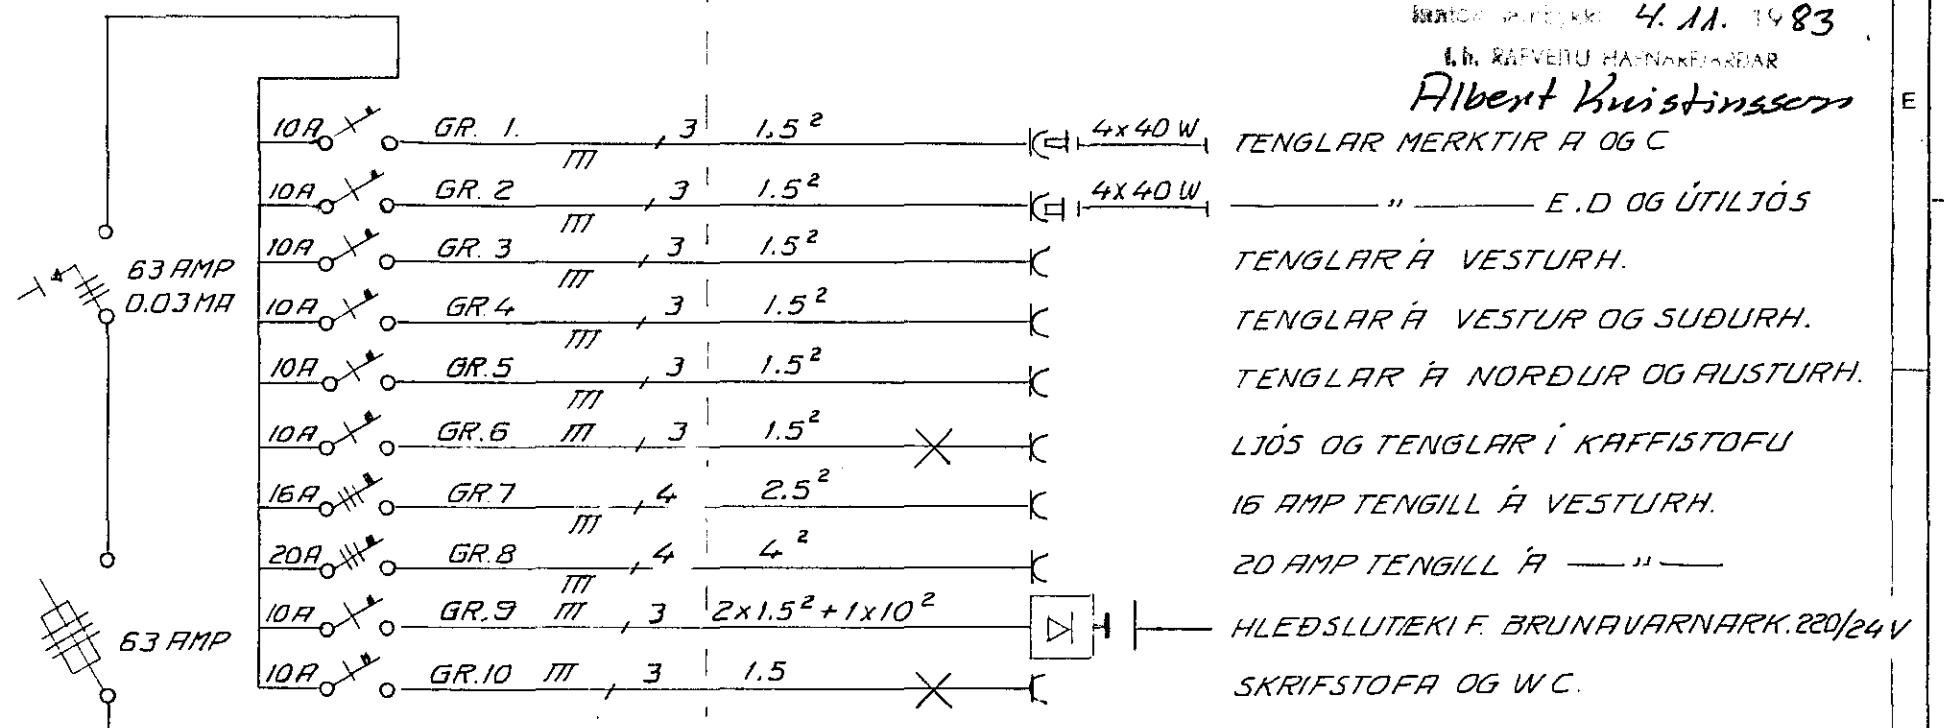 4. 11. 1983
f.h. RAFVEITU HAFNARFJARÐAR
Albert Kristinsson
E
10A GR. 1. 3 1.5² 4x40 W TENGLAR MERKTIR A OG C
10A GR. 2 3 1.5² 4x40 W —— " —— E.D OG ÚTILJÓS
10A GR. 3 3 1.5² TENGLAR Á VESTURH.
63 AMP
0.03 MA
10A GR. 4 3 1.5² TENGLAR Á VESTUR OG SUÐURH.
10A GR. 5 3 1.5² TENGLAR Á NORÐUR OG AUSTURH.
10A GR. 6 3 1.5² LJÓS OG TENGLAR Í KAFFISTOFU
16A GR. 7 4 2.5² 16 AMP TENGILL Á VESTURH.
20A GR. 8 4 4² 20 AMP TENGILL Á —— " ——
10A GR. 9 3 2x1.5² + 1x10² HLEÐSLUTÆKI F. BRUNAVARNARK. 220/24 V
63 AMP
10A GR. 10 3 1.5 SKRIFSTOFA OG WC.